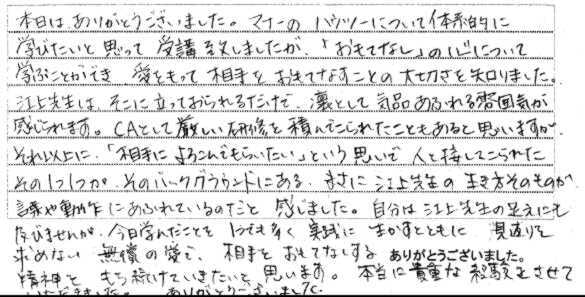 本日はありがとうございました。マナーのハウツーについて体系的に
学びたいと思って受講致しましたが、「おもてなし」の心について
学ぶことができ 愛をもって相手をおもてなすことの大切さを知りました。
江上先生は、そこに立っておられるだけで 凛として気品あふれる雰囲気が
感じられます。CAとして厳しい研修を積んでこられたこともあると思いますが、
それ以上に、「相手によろこんでもらいたい」という思いで人と接してこられた
その1つ1つが そのバックグラウンドにある、まさに江上先生の生き方そのものが
言葉や動作にあふれているのだと感じました。自分は江上先生の足元にも
及びませんが、今日学んだことを1つでも多く実践に生かすとともに 見返りを
求めない無償の愛で、相手をおもてなしする ありがとうございました。
精神をもち続けていきたいと思います。本当に貴重な経験をさせて
いただきました。 ありがとうございました。